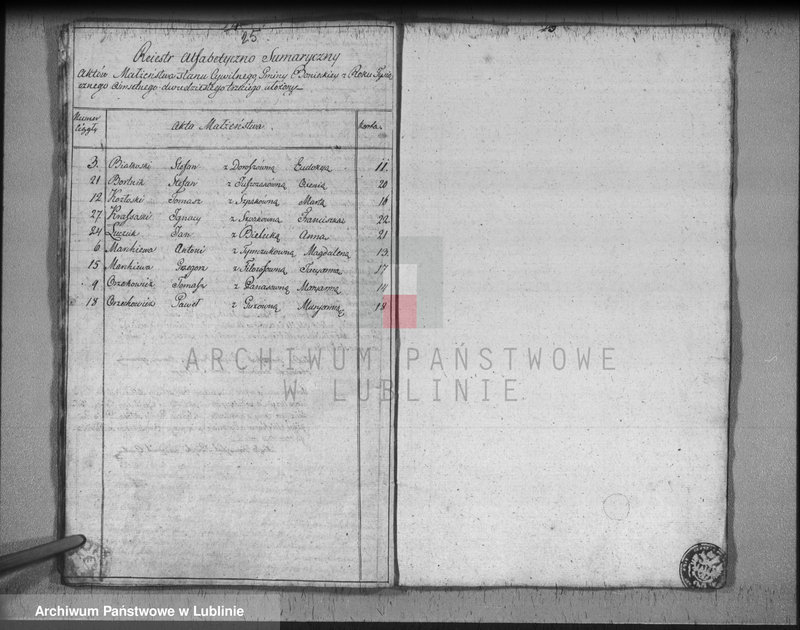 25
Rejestr Alfabetyczno Sumaryczny
Aktów Małżeństwa stanu Cywilnego Gminy z Roku Tysią
cznego Ośmsetnego dwudziestego trzeciego ułożony
Numer ciągły Akta Małżeństwa. Karta.
3. Białkoski Stefan z Doroszówną Eudokya 11.
21 Bortnik Stefan z Oxenia 20
12 Kozłoski Tomasz z Szpakowną Marta 16
27 Ignacy z Skorkowną Franciszka 22
24 Jan z Bielucką Anna 21
6 Mankiewa Antoni z Tymczukowną Magdalena 13.
15 Mankiewa Grzegorz z 17
9 Orzechowicz Tomasz z Panasowną Maryanna 14
18 Orzechowicz Paweł z Guzowną Maryanna 18
ARCHIWUM PAŃSTWOWE
W LUBLINIE
Archiwum Państwowe w Lublinie